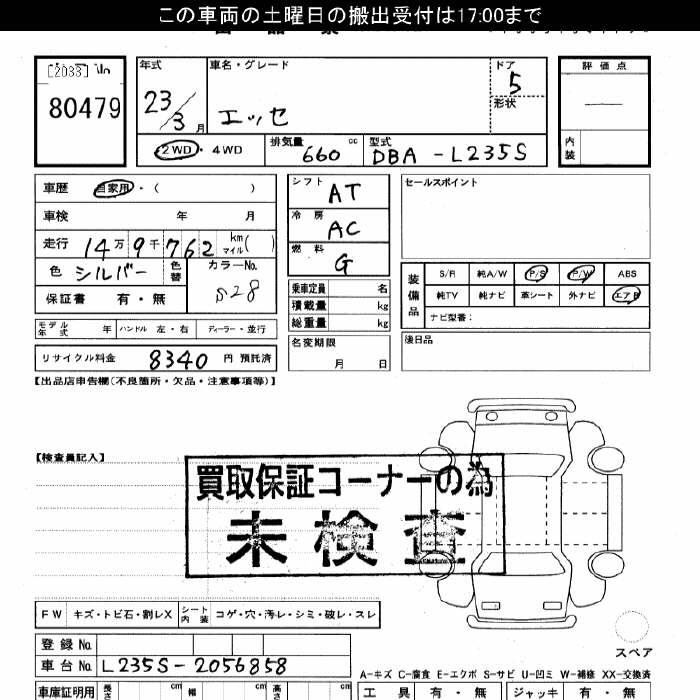 この車両の土曜日の搬出受付は17:00まで
80479
年式 23/3月
車名・グレード エッセ
ドア 5
形状
評価点
内装
2WD・4WD
排気量 660 cc
型式 DBA-L235S
車歴 自家用・( )
車検 年 月
走行 14万9千762 km マイル( )
色 シルバー 色替
カラーNo. S28
保証書 有・無
モデル年式 年 ハンドル 左・右 ディーラー・並行
リサイクル料金 8340 円 預託済
シフト AT
冷房 AC
燃料 G
乗車定員 名
積載量 kg
総重量 kg
名変期限
月 日
セールスポイント
装備品
S/R 純A/W P/S P/W ABS
純TV 純ナビ 革シート 外ナビ エアB
ナビ型番:
後日品
【出品店申告欄(不良箇所・欠品・注意事項等)】
【検査員記入】
買取保証コーナーの為
未検査
FW キズ・トビ石・割レX シート内装 コゲ・穴・汚レ・シミ・破レ・スレ
スペア
登録No.
車台No. L235S-2056858
A-キズ C-腐食 E-エクボ S-サビ U-凹ミ W-補修 XX-交換済
車庫証明用 長さ cm 幅 cm 高さ cm
工具 有・無 ジャッキ 有・無